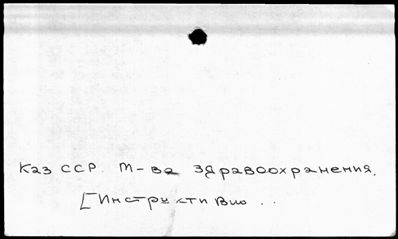 Каз ССР. М-ва здравоохранения.
[Инструктивно ..